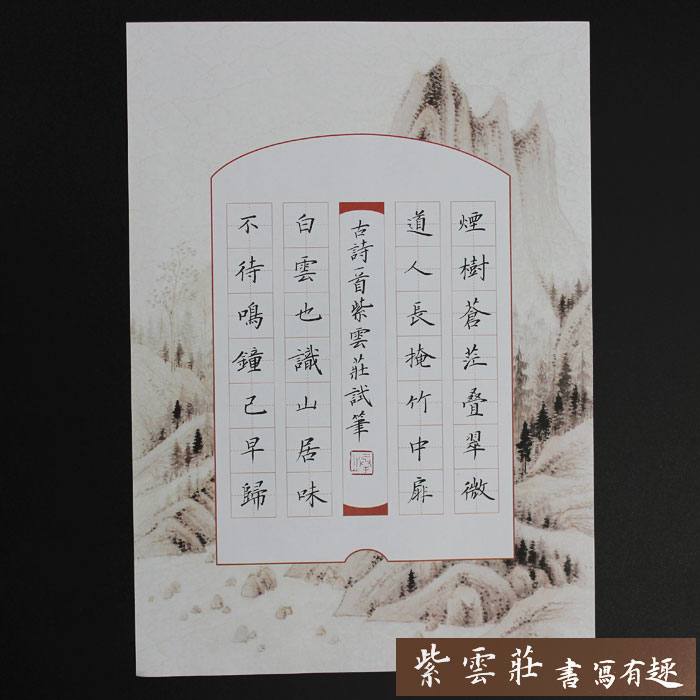 煙樹蒼茫叠翠微
道人長掩竹中扉
古詩一首紫雲莊試筆
白雲也識山居味
不待鳴鐘己早歸
紫雲莊 書寫有趣